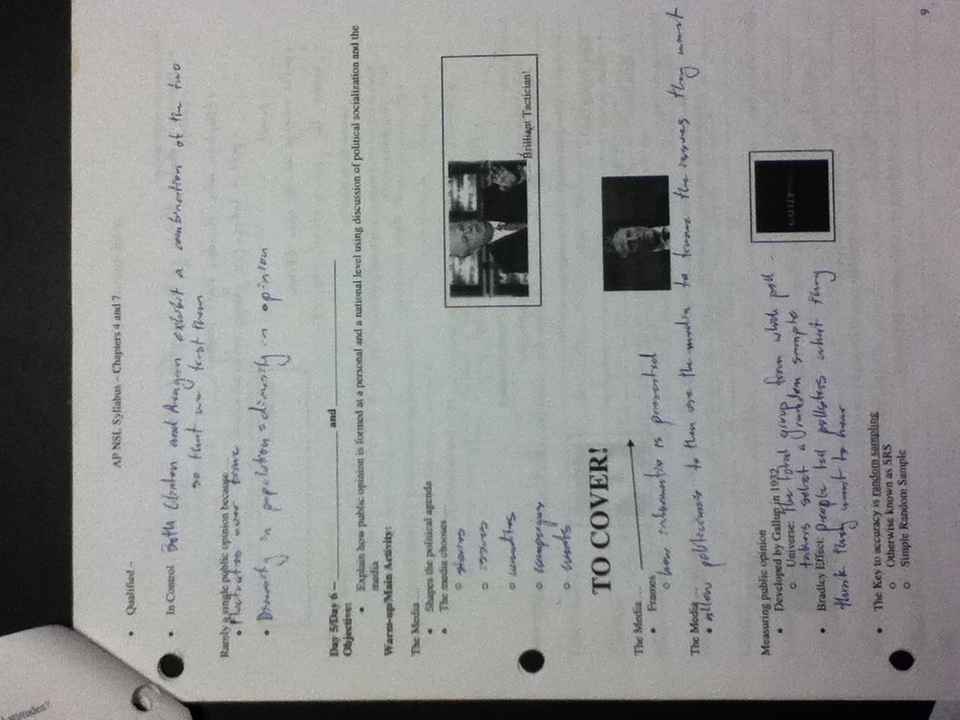 AP NSL Syllabus – Chapters 4 and 7
• Qualified –
• In Control Both Clinton and Reagan exhibit a combination of the two
so that we trust them
Rarely a single public opinion because
• Fluctuates over time
• Diversity in population = diversity in opinion
Day 5/Day 6 – ____________ and ____________
Objective:
• Explain how public opinion is formed at a personal and a national level using discussion of political socialization and the
media
Warm-up/Main Activity:
The Media …
• Shapes the political agenda
• The media chooses …
o stories
o issues
o
o campaigns
o events
Brilliant Tactician!
TO COVER!
The Media …
• Frames
o how information is presented
The Media …
• allow politicians to then use the media to frame the issues they want
Measuring public opinion
• Developed by Gallup in 1932
o Universe: The total group from whole poll
takers select a random sample
• Bradley Effect: people tell pollsters what they
think they want to hear
GALLUP
• The Key to accuracy is random sampling
o Otherwise known as SRS
o Simple Random Sample
9